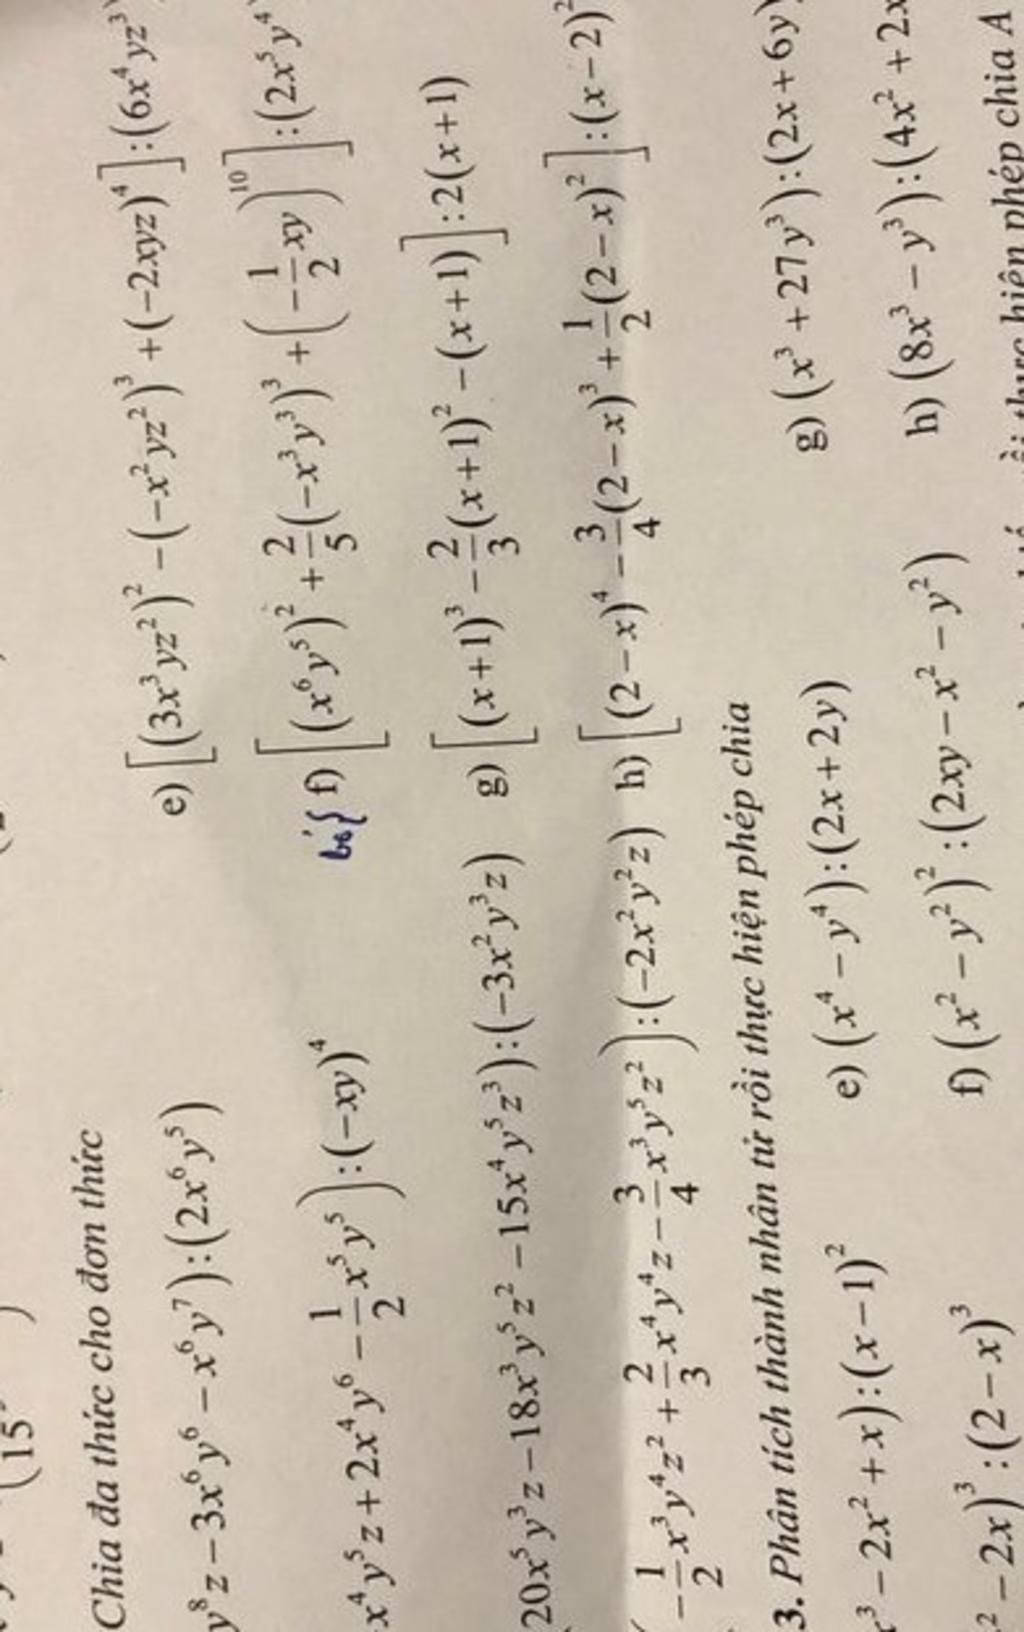 (15
Chia đa thức cho đơn thức
y⁸z − 3x⁶y⁶ − x⁶y⁷) : (2x⁶y⁵)
e) [(3x³yz²)² − (−x²yz²)³ + (−2xyz)⁴] : (6x⁴yz³)
x⁴y⁵z + 2x⁴y⁶ − 1/2 x⁵y⁵) : (−xy)⁴
f) [(x⁶y⁵)² + 2/5 (−x³y³)³ + (−1/2 xy)¹⁰] : (2x⁵y⁴
20x⁵y³z − 18x³y⁵z² − 15x⁴y⁵z³) : (−3x²y³z)
g) [(x+1)³ − 2/3 (x+1)² − (x+1)] : 2(x+1)
(−1/2 x³y⁴z² + 2/3 x⁴y⁴z − 3/4 x³y⁵z²) : (−2x²y²z)
h) [(2−x)⁴ − 3/4 (2−x)³ + 1/2 (2−x)²] : (x−2)²
3. Phân tích thành nhân tử rồi thực hiện phép chia
x³ − 2x² + x) : (x−1)²
e) (x⁴ − y⁴) : (2x+2y)
g) (x³ + 27y³) : (2x+6y)
x² − 2x)³ : (2−x)³
f) (x² − y²)² : (2xy − x² − y²)
h) (8x³ − y³) : (4x² + 2x
thực hiện phép chia A